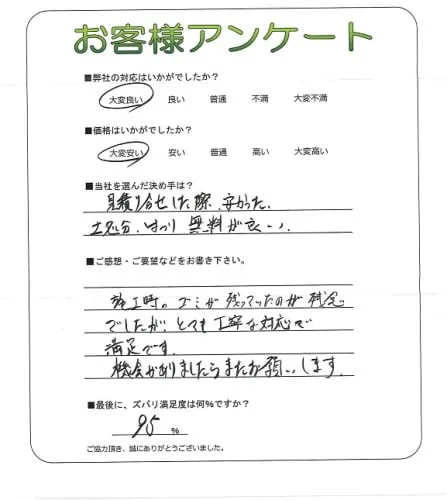 お客様アンケート
■弊社の対応はいかがでしたか?
大変良い 良い 普通 不満 大変不満
■価格はいかがでしたか?
大変安い 安い 普通 高い 大変高い
■当社を選んだ決め手は?
見積り合せした際、安かった。
土処分、はつり 無料が良い。
■ご感想・ご要望などをお書き下さい。
施工時のゴミが残っていたのが残念
でしたが、とても丁寧な対応で
満足です。
機会がありましたらまたお願いします。
■最後に、ズバリ満足度は何%ですか?
95 %
ご協力頂き、誠にありがとうございました。